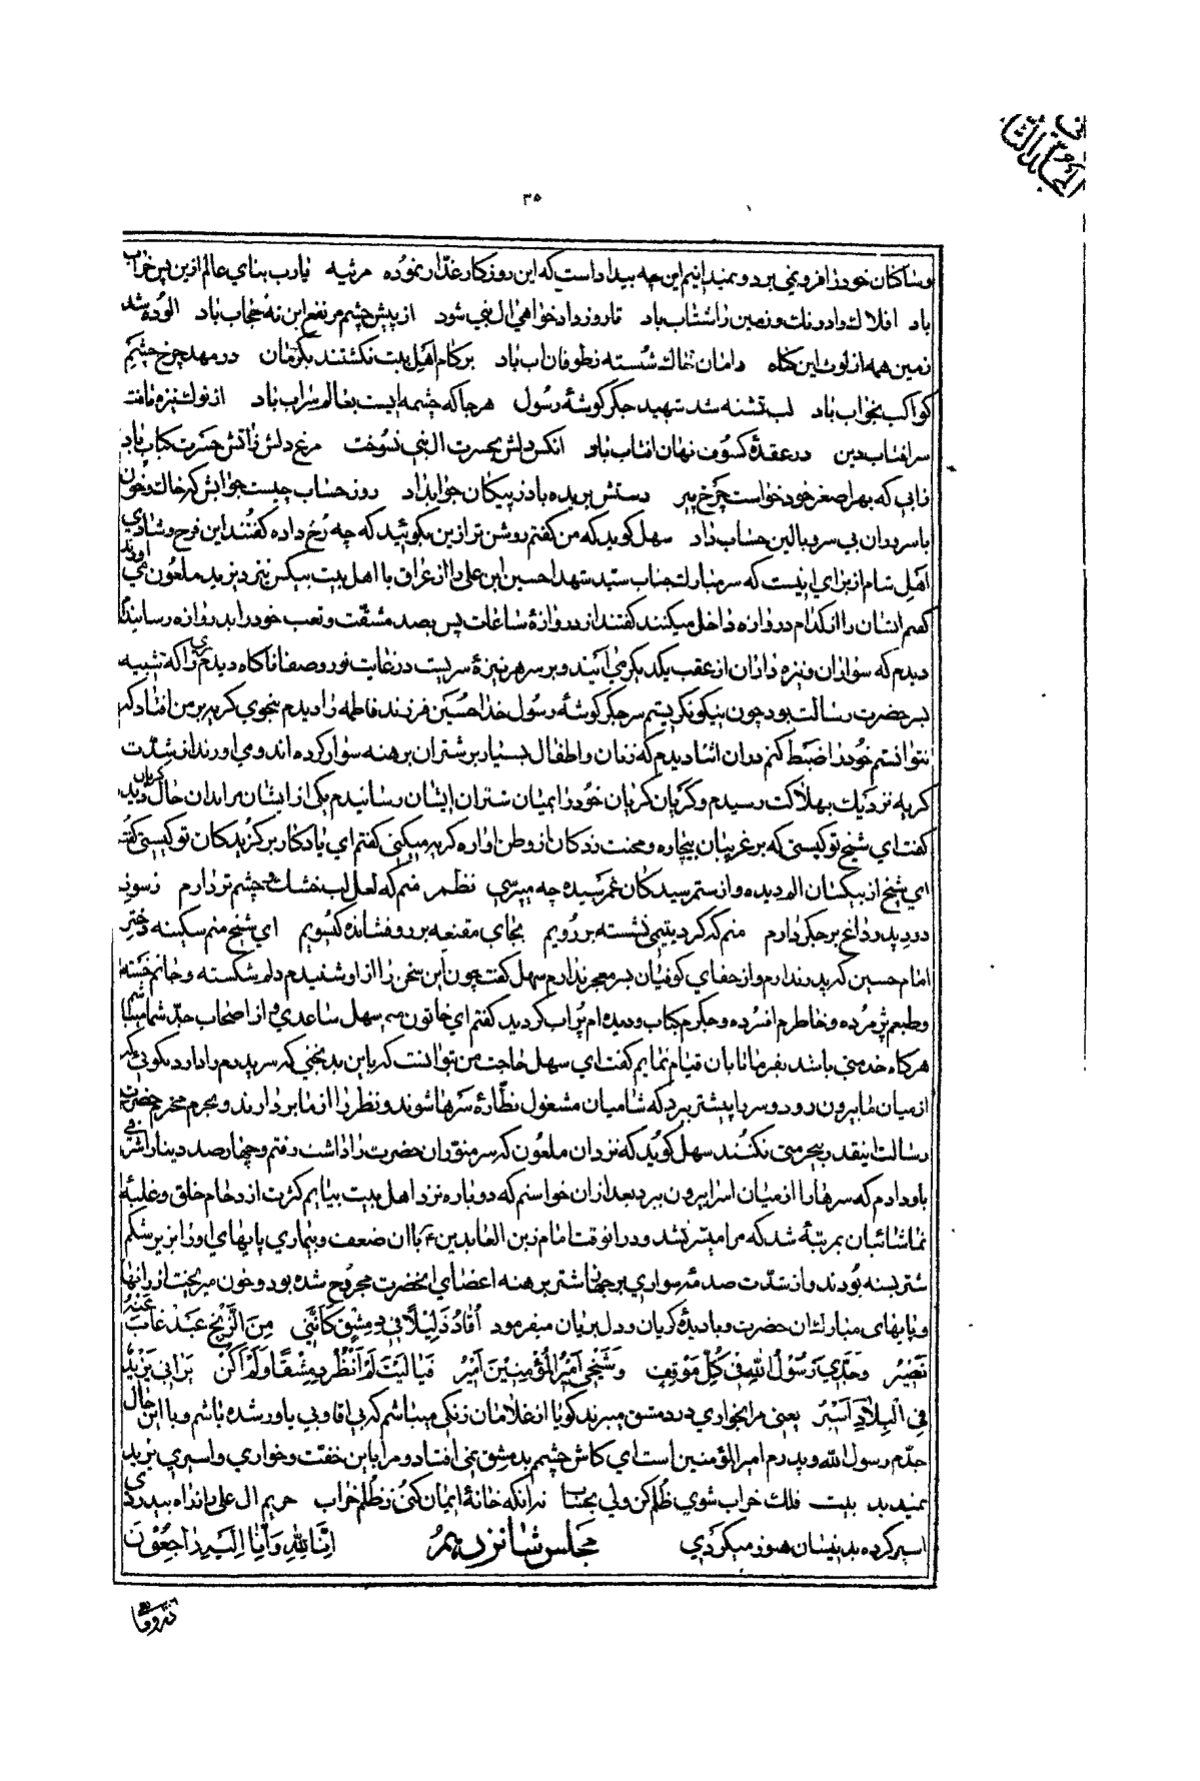 المجلد الثانی
۳۵
و ساکنان خود را فرو نمی برد و نمیدانیم این چه بیداد است که این روزکار غدّار نموده مرثیه یارب بنای عالم ازین پس خراب
باد افلاک را درنك و زمین را شتاب باد تا روز دادخواهی ال نبی شود از پیش چشم مرتفع این نه حجاب باد الوده شد
زمین همه از لوث این کناه دامان خاک شسته ز طوفان اب باد بر کام اهل بیت نکشتند یکزمان در مهد چرخ چشم
کواکب بخواب باد لب تشنه شد شهید جکر کوشهٔ رسول هر جا که چشمه ایست بعالم سراب باد از نوك نیزه تافت
سر افتاب دین در عقدهٔ کسوف نهان افتاب باد انکس دلش بحسرت ال نبی نسوخت مرغ دلش ز آتش حسرت کباب باد
زابی که بهر اصغر خود خواست چرخ پیر دستش بریده باد ز پیکان جواب داد روز حساب چیست جوابش که خاك و خون
با سروران بی سر و بالین حساب داد سهل کوید که من کفتم روشن تر ازین بکوئید که چه رخ داده کفتند این فرح و شادی
اهل شام از برای اینست که سر مبارك جناب سید شهدا حسین ابن علی را از عراق با اهل بیت بیکس بنزد یزید ملعون می اورند
کفتم ایشان را از کدام دروازه داخل میکنند کفتند از دروازهٔ ساعات پس بصد مشقت و تعب خود را بدروازه رسانیدم
دیدم که سواران و نیزه داران از عقب یکدیکر می آیند و بر سر هر نیزهٔ سریست در غایت نور و صفا ناکاه دیدم سری را که شبیه
بسر حضرت رسالت بود چون نیکو نکریستم سر جکر کوشهٔ رسول خدا حسین فرزند فاطمه را دیدم بنحوی کریه بر من افتاد که
نتوانستم خود را ضبط کنم در ان اثنا دیدم که زنان و اطفال بسیار بر شتران برهنه سوار کرده اند و می اورند از شدت
کریه نزدیك بهلاکت رسیدم و کریان کریان خود را بمیان شتران ایشان رسانیدم یکی از ایشان مرا بدان حال کریان دید
کفت ای شیخ تو کیستی که بر غریبان بیچاره و محنت زدکان از وطن اواره کریه میکنی کفتم ای یادکار برکزیدکان تو کیستی کفت
ای شیخ از بیکسان الم دیده و از ستم رسیدکان غم رسیده چه میپرسی نظم منم که لعل لب خشك و چشم تر دارم ز سوز
درد پدر داغ بر جکر دارم منم که کرد یتیمی نشسته بر رویم بجای مقنعه بر رو فشانده کیسویم ای شیخ منم سکینه دختر
امام حسین که پدر ندارم و از جفای کوفیان بسر معجر ندارم سهل کفت چون این سخن را از او شنیدم دلم شکسته و جانم خسته
و طبعم پژمرده و خاطرم افسرده و جکرم کباب و دیده ام پر اب کردید کفتم ای خاتون من سهل ساعدی و از اصحاب جد شما میباشم
هر کاه خدمتی باشد بفرما تا بان قیام نمایم کفت ای سهل حاجت من بتو انست که باین بدبختی که سر پدرم را دارد بکوئی که
از میان ما بیرون رود و سر را پیشتر برد که شامیان مشغول نظارهٔ سرها شوند و نظر را از ما بردارند و بحرم محترم حضرت
رسالت اینقدر بیحرمتی نکنند سهل کوید که نزد ان ملعون که سر منور ان حضرت را داشت رفتم و چهار صد دینار اشرفی
باو دادم که سرها را از میان اسرا بیرون برد بعد از ان خواستم که دوباره نزد اهل بیت بیایم کثرت ازدحام خلق و غلبهٔ
تماشائیان بمرتبهٔ شد که مرا میسر نشد و در انوقت امام زین العابدین ع با ان ضعف و بیماری پایهای او را بزیر شکم
شتر بسته بودند و از شدت صدمهٔ سواری بر جهاز شتر برهنه اعضای انحضرت مجروح شده بود و خون میریخت از رانها
و پایهای مبارك ان حضرت و با دیدهٔ کریان و دل بریان میفرمود اُقادُ ذَلِیلاً فی دِمَشْقَ کَأَنَّنِی مِنَ الزَّنْجِ عَبْدٌ غابَ عَنْهُ
نَصِیرُ وَجَدِّی رَسُولُ اللهِ فی کُلِّ مَوْقِفٍ وَشَیْخِی اَمِیرُ الْمُؤْمِنِینَ اَمِیرُ فَیا لَیْتَ لَمْ اَنْظُرْ دِمَشْقًا وَلَمْ اَکُنْ یَرانی یَزِیدُ
فِی الْبِلادِ اَسِیرُ یعنی مرا بخواری در دمشق میبرند کویا از غلامان زنکی میباشم که بی اقا و بی یاور شده باشم و با این حال
جدّم رسول الله و پدرم امیر المؤمنین است ای کاش چشمم بدمشق نمی افتاد و مرا باین خفت و خواری و اسیری یزید
نمیدید بیت فلك خراب شوی ظلم کن ولی بحساب نه انکه خانهٔ ایمان کنی ز ظلم خراب حریم ال علی را ز راه بیدردی
اسیر کرده بدینسان هنوز میکردی مجلس شانزدهم اِنّا لِلّهِ وَاِنّا اِلَیْهِ راجِعُونَ